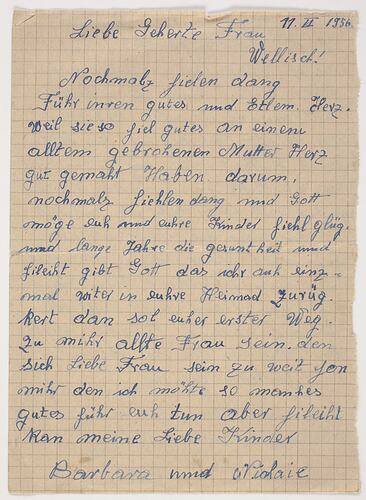 11. II 1956.
Liebe Geherte Frau
Wellisch!
Nochmalz fielen dang
Führ inren gutes und Etlem. Herz.
Weil sie so fiel gutes an einem
alltem gebrohenen Mutter Herz
gut gemaht Haben darum,
nochmalz fiehlen dang und Gott
möge euh und euhre Kinder fiehl glüg,
und lange Jahre die gesuntheit und
fileiht gibt Gott das ihr auh einz-
mal witer in euhre Heimad zurüg.
kert dan sol euher erster Weg.
Zu mihr allte Frau sein. den
sich Liebe Frau sein zu weit fon
mihr den ich möhte so manhes
gutes führ euh tun aber fileiht
kan meine Liebe Kinder
Barbara und Nicolaie